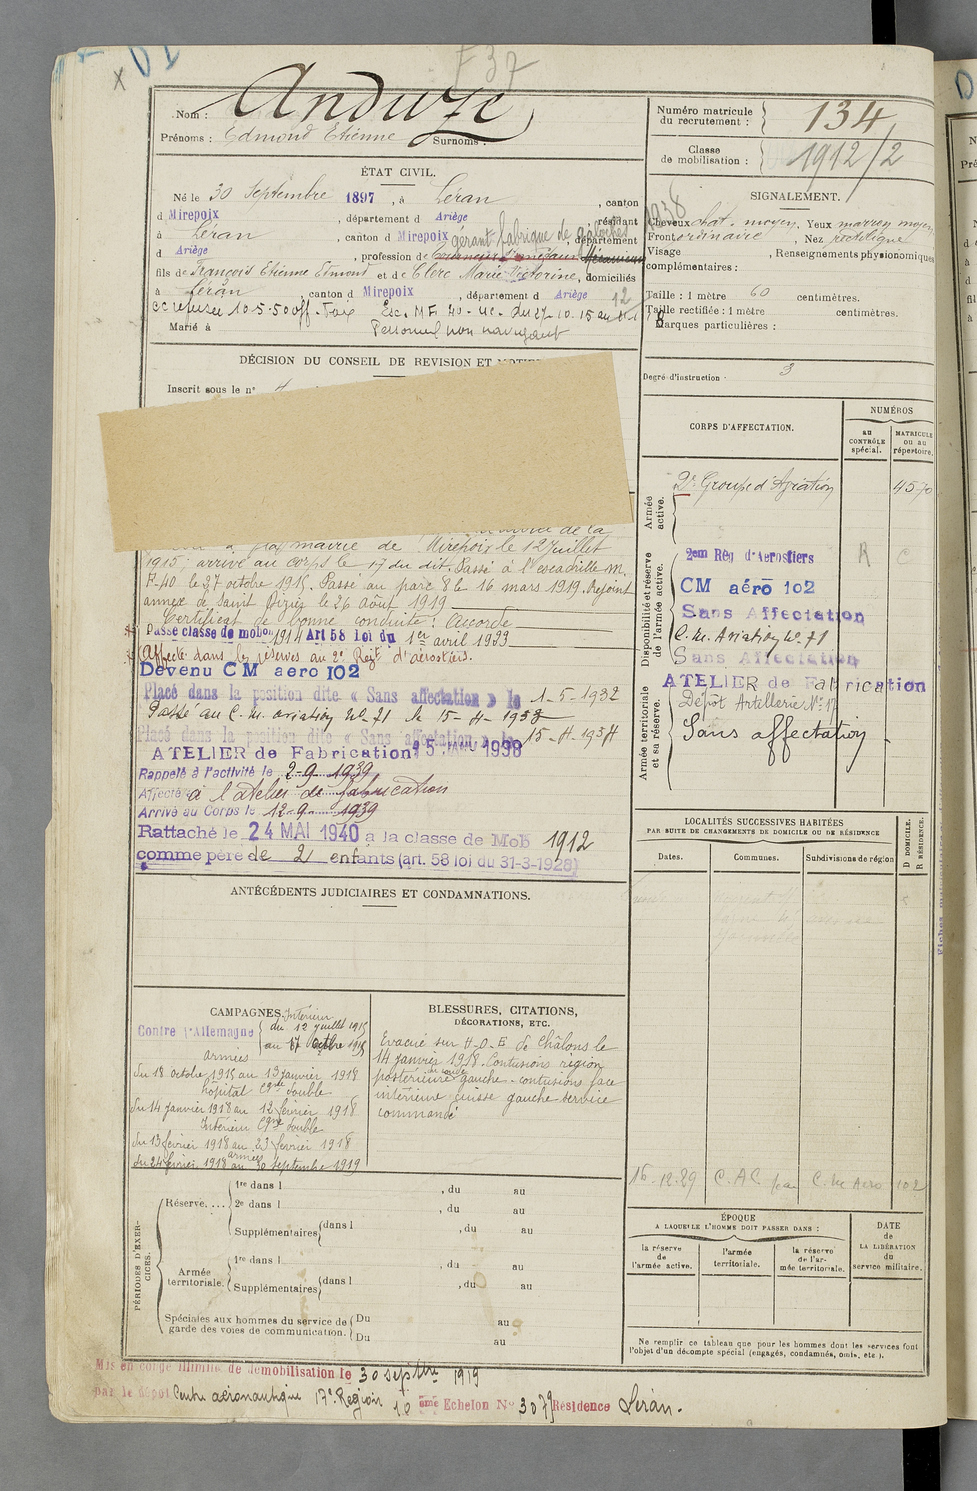 F 37
Nom : Anduze
Prénoms : Edmond Etienne Surnoms :
Numéro matricule
du recrutement : 134
Classe
de mobilisation : 1912/2
ÉTAT CIVIL.
Né le 30 Septembre 1897, à Léran, canton
d Mirepoix, département d Ariège, résidant
à Léran, canton d Mirepoix gérant fabrique de galoches, département
d Ariège, profession de
fils de François Etienne Edmond et de Clerc Marie Victorine, domiciliés
à Léran canton d Mirepoix, département d Ariège 12
Esc. M F 40
Marié à Personnel non navigant
SIGNALEMENT.
1938
Cheveux chat. moyen, Yeux marron moyen
Front ordinaire, Nez rectiligne
Visage , Renseignements physionomiques
complémentaires :
Taille : 1 mètre 60 centimètres.
Taille rectifiée : 1 mètre centimètres.
Marques particulières :
Degré d'instruction : 3
DÉCISION DU CONSEIL DE REVISION ET
Inscrit sous le n° 4
mairie de Mirepoix le 12 Juillet
1915, arrivé au corps le 17 du dit. Passé à l'escadrille M.
F. 40 le 27 octobre 1915. Passé au parc 8 le 16 mars 1919. Rejoint
annexe de Saint Dizier le 26 Août 1919
Certificat de bonne conduite : Accordé
Passé classe de mobon 1914 Art 58 loi du 1er avril 1923
Affecté dans les réserves au 2e Regt d'aérostiers.
Devenu CM aero 102
Placé dans la position dite « Sans affectation » le 1-5-1932
Passé au C. M. aviation No 71 le 15-4-193
Placé dans la position dite « Sans affectation » le 15-4-193
ATELIER de Fabrication 15 1938
Rappelé à l'activité le 2-9-1939
Affecté à l'atelier de fabrication
Arrivé au Corps le 12-9-1939
Rattaché le 24 MAI 1940 à la classe de Mob 1912
comme père de 2 enfants (art. 58 loi du 31-3-1928)
CORPS D'AFFECTATION.
NUMÉROS
au
CONTRÔLE
spécial.
MATRICULE
ou au
répertoire.
Armée
active.
2e Groupe d'Aviation 4570
Disponibilité et réserve
de l'armée active.
2em Rég d'Aerostiers R C
CM aéro 102
Sans Affectation
C. M. Aviation No 71
Sans Affectation
Armée territoriale
et sa réserve.
ATELIER de Fabrication
Dépôt Artillerie No 17
Sans affectation
LOCALITÉS SUCCESSIVES HABITÉES
PAR SUITE DE CHANGEMENTS DE DOMICILE OU DE RÉSIDENCE
Dates.
Communes.
Subdivisions de région
D DOMICILE.
R RÉSIDENCE.
16-12-29 C.M Aero 102
ANTÉCÉDENTS JUDICIAIRES ET CONDAMNATIONS.
CAMPAGNES.
Intérieur
Contre l'Allemagne du 12 juillet 1915
au 17 octobre 1915
armées
du 18 octobre 1915 au 13 janvier 1918
hôpital Cgne double
du 14 janvier 1918 au 12 février 1918
Intérieur Cgne double
du 13 février 1918 au 23 février 1918
armées
du 24 février 1918 au 30 septembre 1919
BLESSURES, CITATIONS,
DÉCORATIONS, ETC.
Evacué sur H.O.E de Châlons le
14 janvier 1918. Contusions région
postérieure du coude gauche - contusions face
intérieure cuisse gauche service
commandé
PÉRIODES D'EXER-
CICES.
Réserve. ...
1re dans l , du au
2e dans l , du au
Supplémentaires dans l , du au
Armée
territoriale.
1re dans l , du au
Supplémentaires dans l , du au
Spéciales aux hommes du service de
garde des voies de communication.
Du au
Du au
ÉPOQUE
A LAQUELLE L'HOMME DOIT PASSER DANS :
la réserve
de
l'armée active.
l'armée
territoriale.
la réserve
de l'ar-
mée territoriale.
DATE
de
LA LIBÉRATION
du
service militaire.
Ne remplir ce tableau que pour les hommes dont les services font
l'objet d'un décompte spécial (engagés, condamnés, omis, etc.).
Mis en congé illimité de démobilisation le 30 septbre 1919
par le dépôt Centre aéronautique 17e Région 10 ème Echelon No 3079 Résidence Léran.